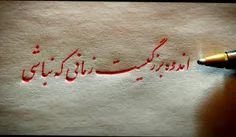 اندوه بزرگیست زمانی که نباشی